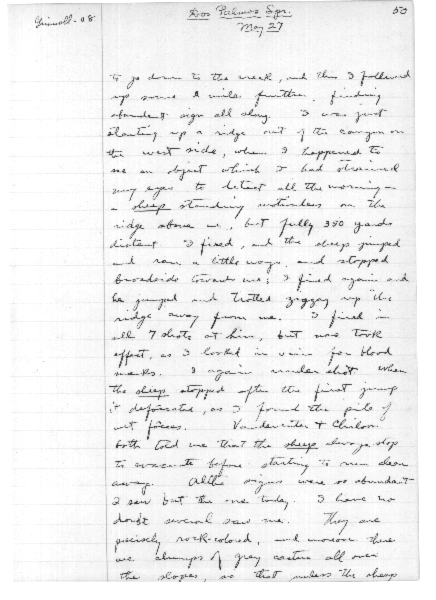 Grinnell-08
Dos Palmos Spr.
50
May 27
to go down to the creek, and then I followed
up some 2 miles further, finding
abundant sign all along. I was just
slanting up a ridge out of the canyon on
the west side, when I happened to
see an object which I had strained
my eyes to detect all the morning -
a sheep standing motionless on the
ridge above me, but fully 350 yards
distant. I fired, and the sheep jumped
and ran a little ways, and stopped
broadside towards me; I fired again and
he jumped and trotted zigzag up the
ridge away from me. I fired in
all 7 shots at him, but none took
effect, as I looked in vain for blood
marks. I again under shot. When
the sheep stopped after the first jump
it defecated, as I found the pile of
wet faeces. Vandeventer &
both told me that the sheep always stop
to evacuate before starting to run clear
away. Altho signs were so abundant
I saw but the one today. I have no
doubt several saw me. They are
precisely rock-colored, and moreover there
are clumps of gray cactus all over
the slopes, so that unless the sheep